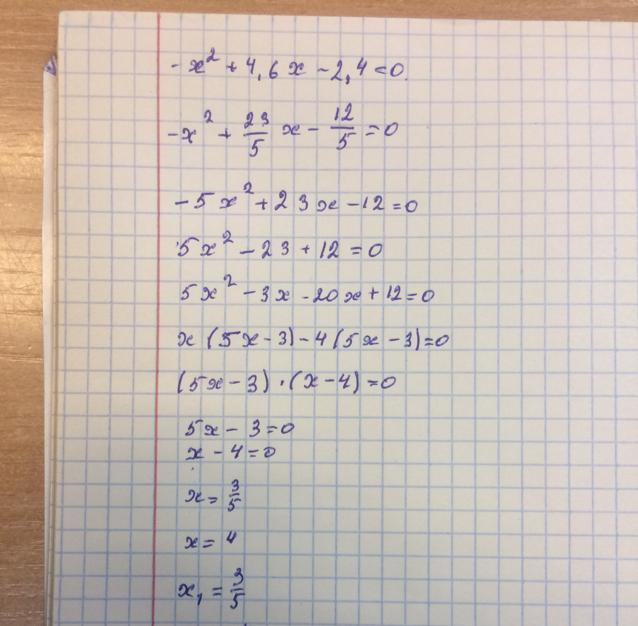 -x² + 4,6x - 2,4 = 0.
-x² + 23/5 x - 12/5 = 0
-5x² + 23x - 12 = 0
5x² - 23 + 12 = 0
5x² - 3x - 20x + 12 = 0
x(5x - 3) - 4(5x - 3) = 0
(5x - 3) · (x - 4) = 0
5x - 3 = 0
x - 4 = 0
x = 3/5
x = 4
x₁ = 3/5